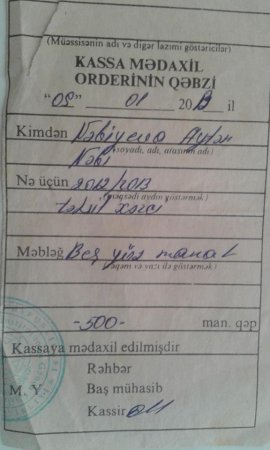 (Müəssisənin adı və digər lazımi göstəricilər)
KASSA MƏDAXİL
ORDERİNİN QƏBZİ
"05" 01 2013 il
Kimdən Nəbiyeva Aytən
(soyadı, adı, atasının adı)
Nəbi
Nə üçün 2012/2013
(məqsədi aydın göstərmək)
təhsil xərci
Məbləğ Beş yüz manat
(rəqəm və yazı ilə göstərmək)
-500- man. qəp
Kassaya mədaxil edilmişdir
Rəhbər
M. Y. Baş mühasib
Kassir